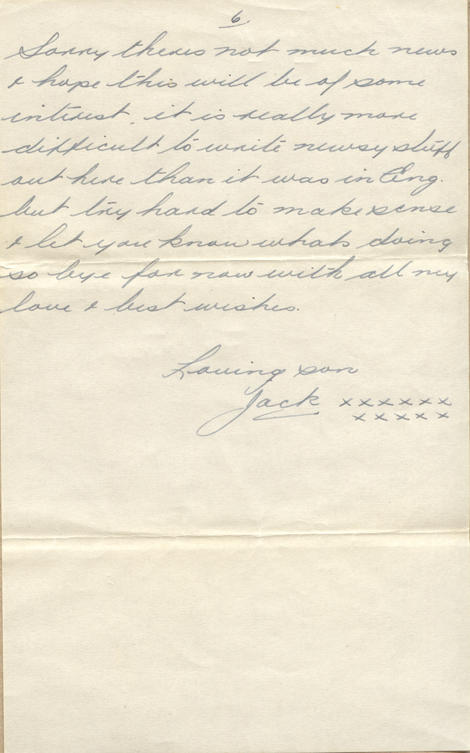 6.
Sorry theres not much news
& hope this will be of some
interest. it is really more
difficult to write newsy stuff
out here than it was in Eng.
but try hard to make sense
& let you know whats doing
so bye for now with all my
love & best wishes.
Loving son
Jack xxxxxx
xxxxx